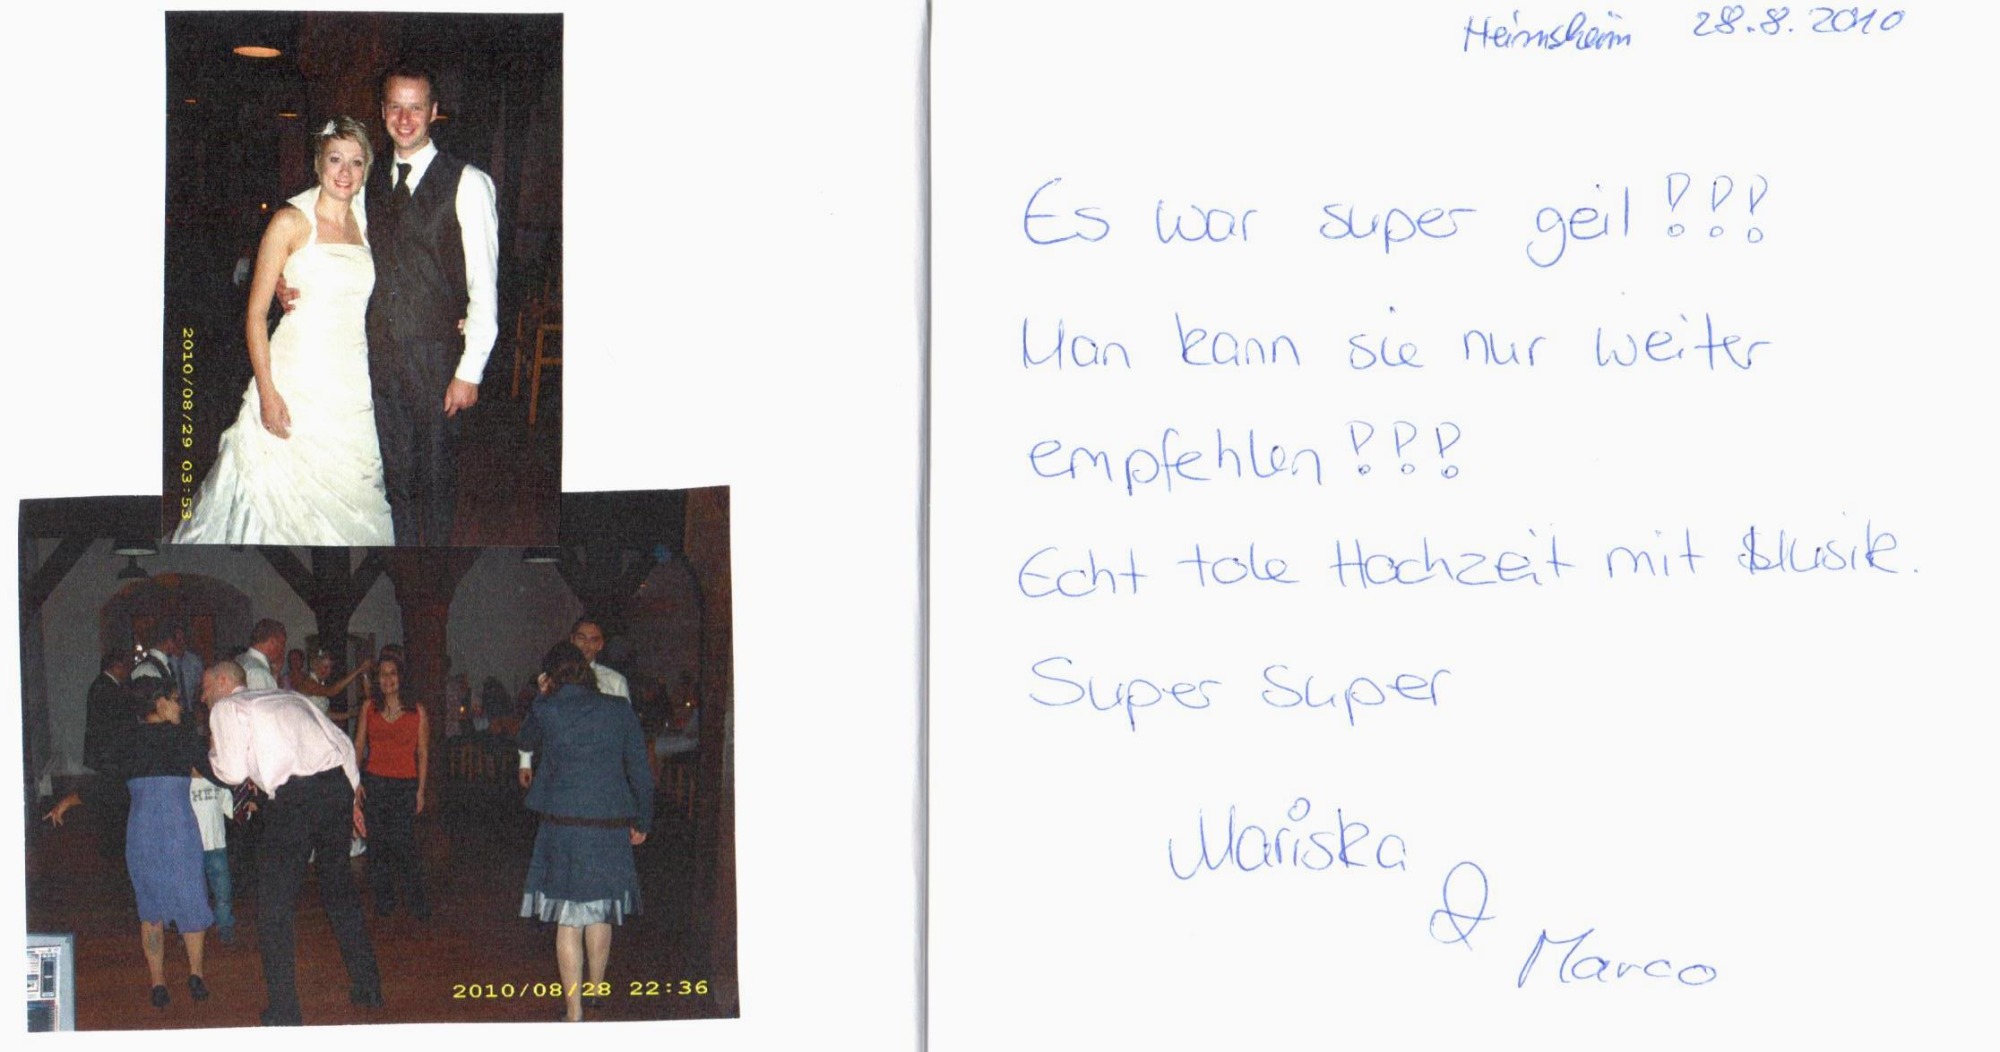 2010/08/29 03:53
HEF
2010/08/28 22:36
Heimsheim 28.8.2010
Es war super geil!!!
Man kann sie nur weiter
empfehlen!!!
Echt tole Hochzeit mit Musik.
Super Super
Mariska
&
Marco